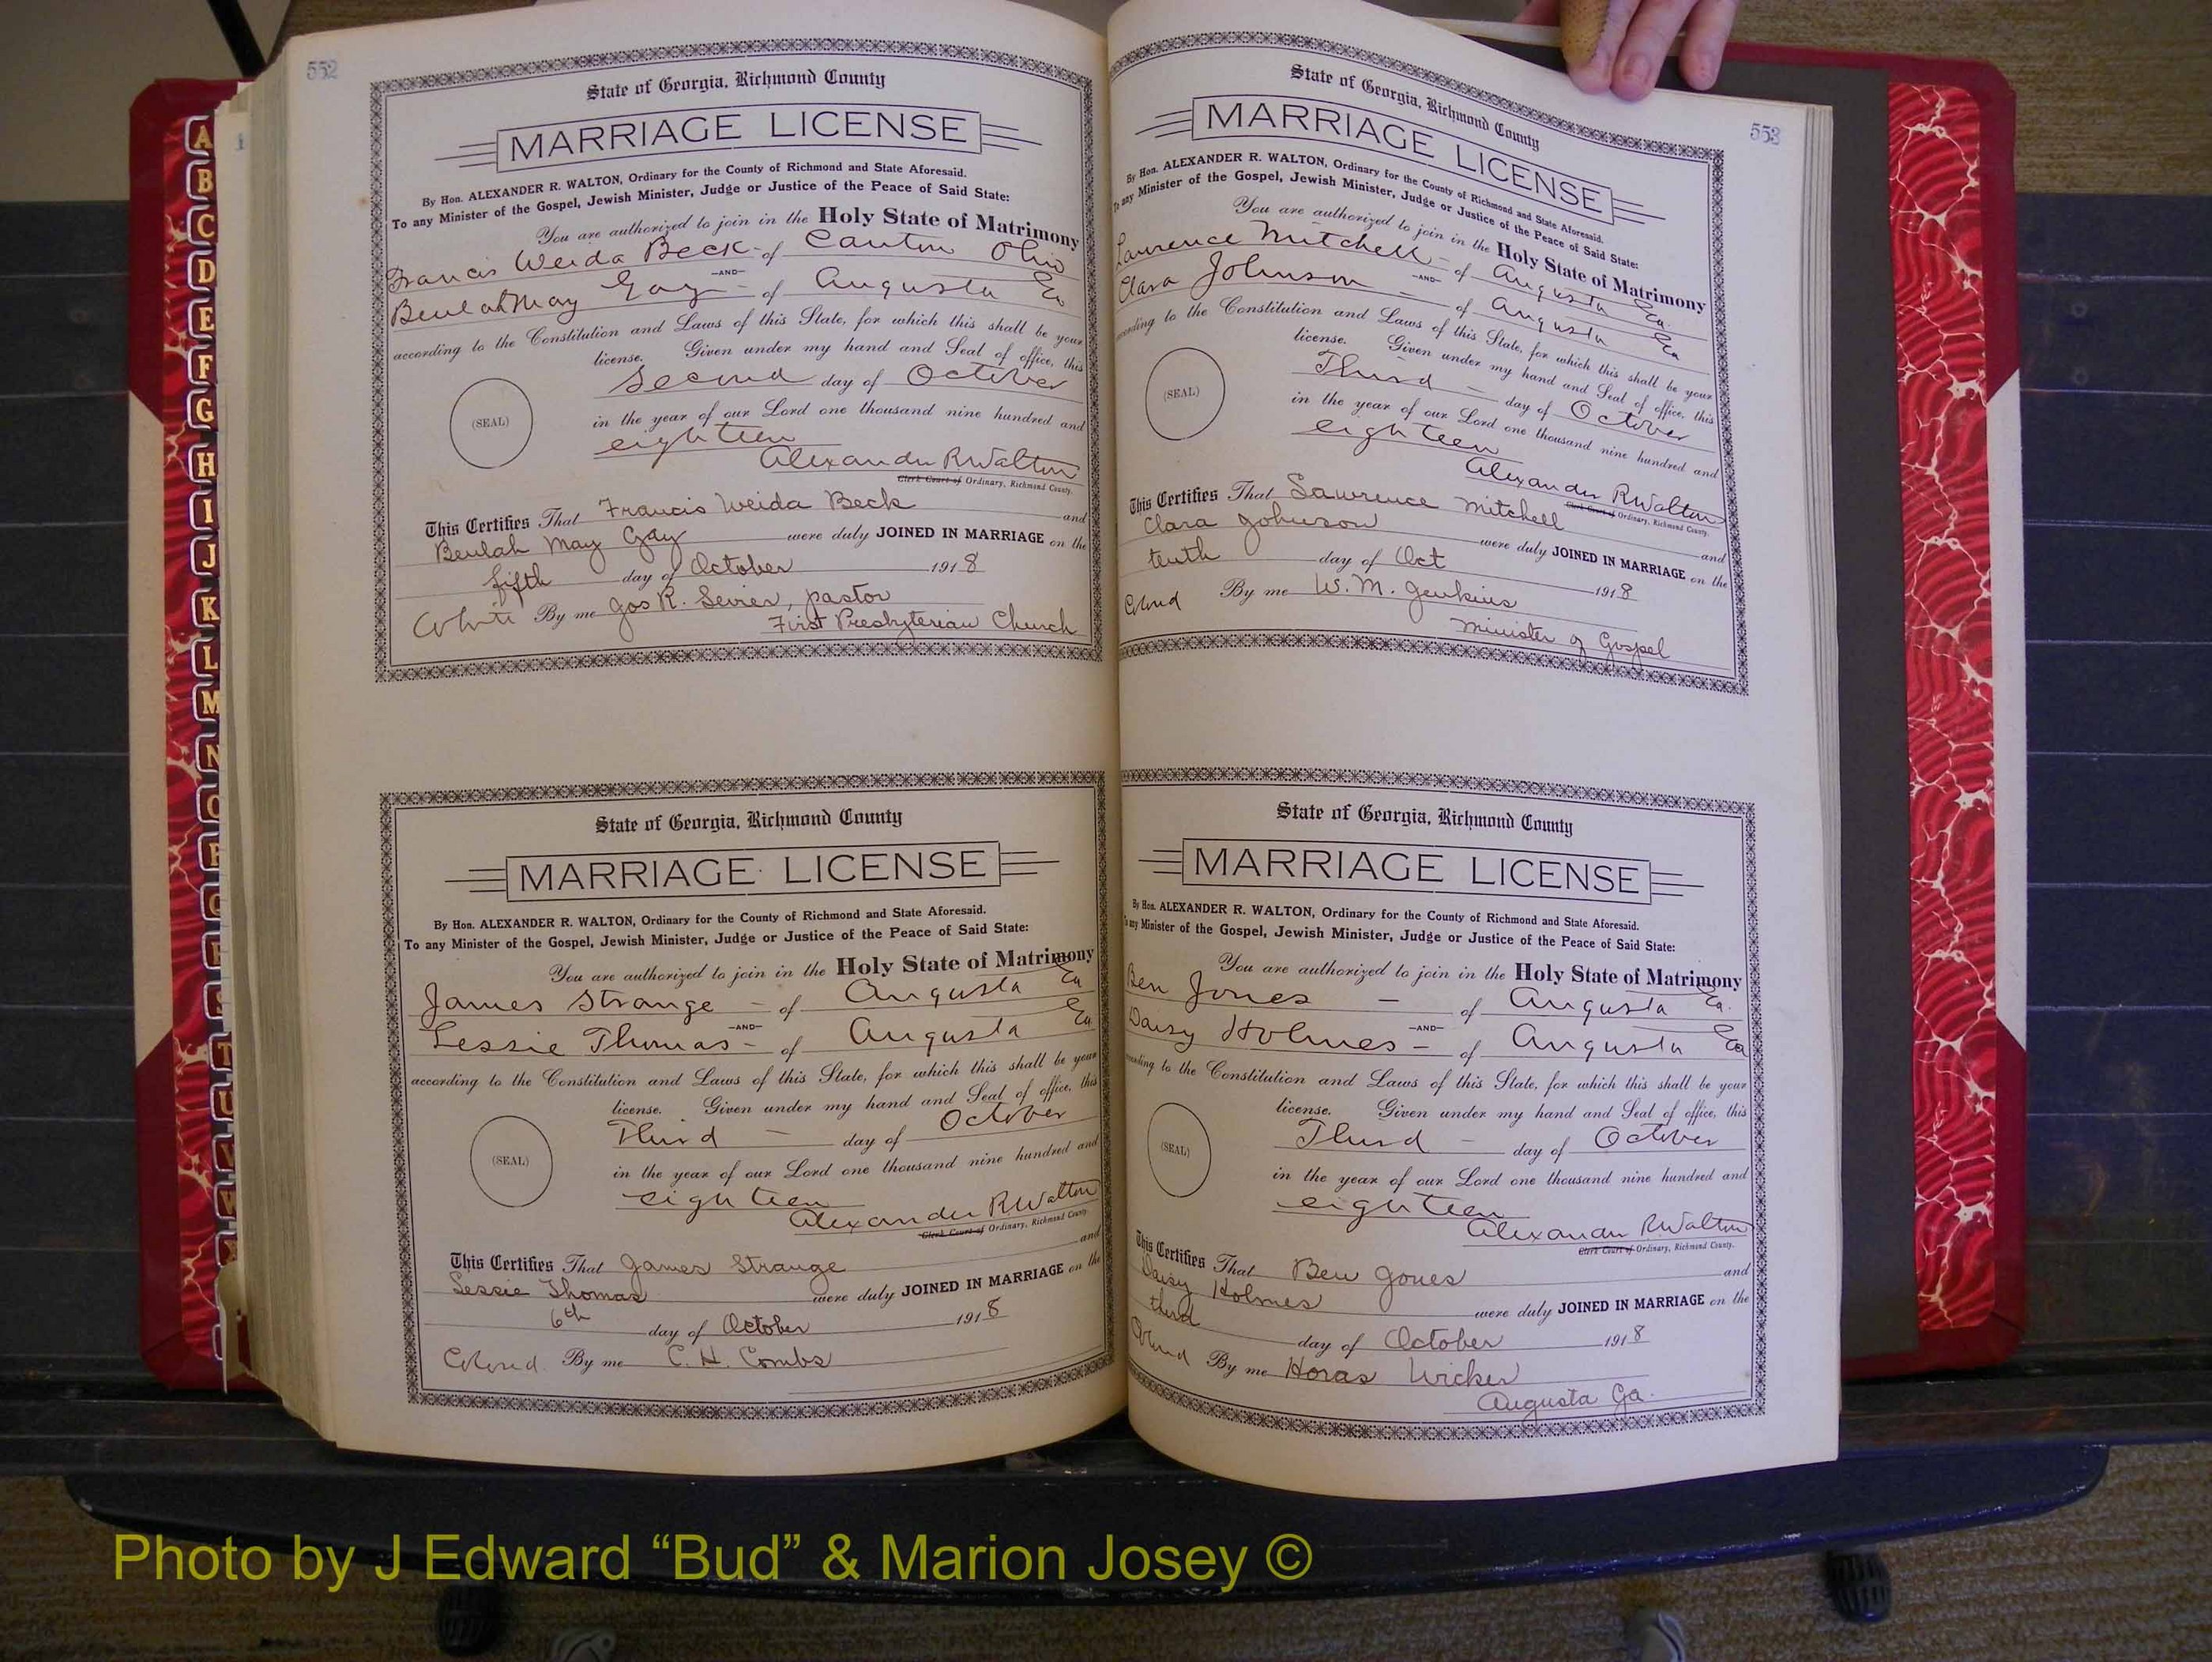 552
State of Georgia, Richmond County
MARRIAGE LICENSE
By Hon. ALEXANDER R. WALTON, Ordinary for the County of Richmond and State Aforesaid.
To any Minister of the Gospel, Jewish Minister, Judge or Justice of the Peace of Said State:
You are authorized to join in the Holy State of Matrimony
Francis Weida Beck - of Canton Ohio
-AND-
Beulah May Gay - of Augusta Ga
according to the Constitution and Laws of this State, for which this shall be your
license. Given under my hand and Seal of office, this
Second day of October
(SEAL)
in the year of our Lord one thousand nine hundred and
eighteen
Alexander R Walton
Clerk Court of Ordinary, Richmond County.
This Certifies That Francis Weida Beck and
Beulah May Gay were duly JOINED IN MARRIAGE on the
fifth day of October 1918
White By me Jos R. Sevier, pastor
First Presbyterian Church
State of Georgia, Richmond County
MARRIAGE LICENSE
By Hon. ALEXANDER R. WALTON, Ordinary for the County of Richmond and State Aforesaid.
To any Minister of the Gospel, Jewish Minister, Judge or Justice of the Peace of Said State:
You are authorized to join in the Holy State of Matrimony
James Strange - of Augusta Ga
-AND-
Lessie Thomas - of Augusta Ga
according to the Constitution and Laws of this State, for which this shall be your
license. Given under my hand and Seal of office, this
Third - day of October
(SEAL)
in the year of our Lord one thousand nine hundred and
eighteen
Alexander R Walton
Clerk Court of Ordinary, Richmond County.
This Certifies That James Strange and
Lessie Thomas were duly JOINED IN MARRIAGE on the
6th day of October 1918
Colored By me C. H. Combs
553
State of Georgia, Richmond County
MARRIAGE LICENSE
By Hon. ALEXANDER R. WALTON, Ordinary for the County of Richmond and State Aforesaid.
To any Minister of the Gospel, Jewish Minister, Judge or Justice of the Peace of Said State:
You are authorized to join in the Holy State of Matrimony
Lawrence Mitchell - of Augusta Ga.
-AND-
Clara Johnson - of Augusta Ga
according to the Constitution and Laws of this State, for which this shall be your
license. Given under my hand and Seal of office, this
Third - day of October
(SEAL)
in the year of our Lord one thousand nine hundred and
eighteen
Alexander R Walton
Clerk Court of Ordinary, Richmond County.
This Certifies That Lawrence Mitchell and
Clara Johnson were duly JOINED IN MARRIAGE on the
tenth day of Oct 1918
Colord By me W. M. Jenkins
Minister of Gospel
State of Georgia, Richmond County
MARRIAGE LICENSE
By Hon. ALEXANDER R. WALTON, Ordinary for the County of Richmond and State Aforesaid.
To any Minister of the Gospel, Jewish Minister, Judge or Justice of the Peace of Said State:
You are authorized to join in the Holy State of Matrimony
Ben Jones - of Augusta Ga.
-AND-
Daisy Holmes - of Augusta Ga
according to the Constitution and Laws of this State, for which this shall be your
license. Given under my hand and Seal of office, this
Third - day of October
(SEAL)
in the year of our Lord one thousand nine hundred and
eighteen
Alexander R Walton
Clerk Court of Ordinary, Richmond County.
This Certifies That Ben Jones and
Daisy Holmes were duly JOINED IN MARRIAGE on the
third day of October 1918
Colord By me Horas Wicker
Augusta Ga.
A
B
C
D
E
F
G
H
I
J
K
L
M
N
O
P
Q
R
S
T
U
V
W
X
Photo by J Edward “Bud” & Marion Josey ©